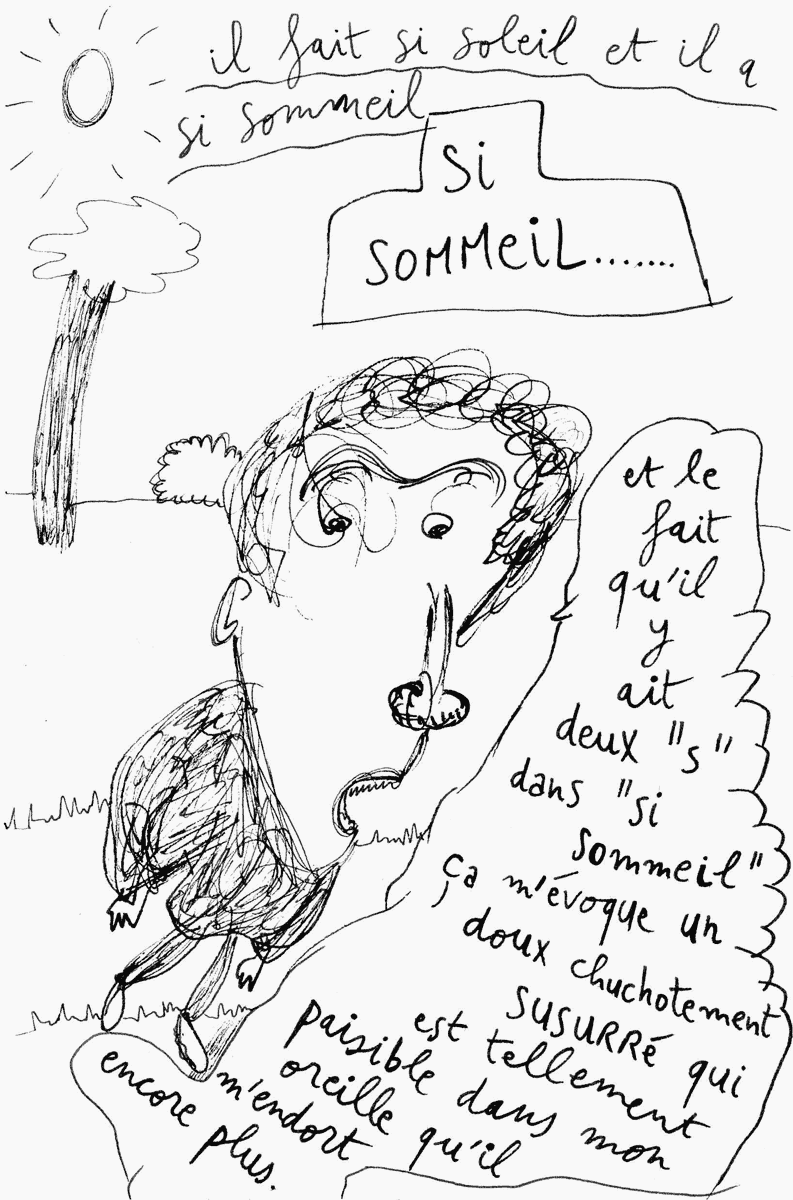 il fait si soleil et il a
si sommeil
SI
SOMMEIL.......
et le
fait
qu'il
y
ait
deux "s"
dans "si
sommeil"
ça m'évoque un
doux chuchotement
SUSURRé qui
est tellement
paisible dans mon
oreille qu'il
m'endort
encore plus.